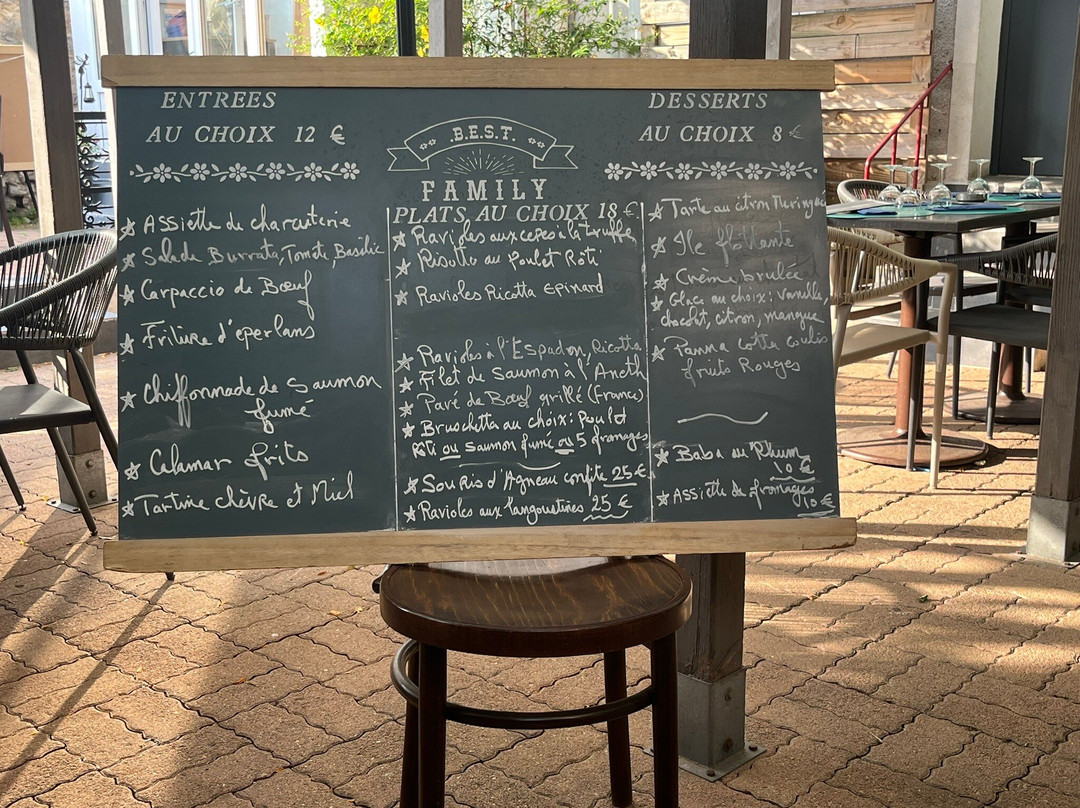 ENTREES
AU CHOIX 12 €
★ Assiette de charcuterie
★ Salade Burrata, Tomate, Basilic
★ Carpaccio de Bœuf
★ Friture d'eperlans
★ Chiffonnade de Saumon
fumé
★ Calamar frits
★ Tartine chèvre et Miel
B.E.S.T.
FAMILY
PLATS AU CHOIX 18 €
★ Ravioles aux cepes à la truffe
★ Risotto au Poulet Rôti
★ Ravioles Ricotta Epinard
★ Ravioles à l'Espadon, Ricotta
★ Filet de Saumon à l'Aneth
★ Pavé de Bœuf grillé (France)
★ Bruschetta au choix: Poulet
Rôti ou Saumon fumé ou 5 fromages
★ Souris d'Agneau confite 25 €
★ Ravioles aux langoustines 25 €
DESSERTS
AU CHOIX 8 €
★ Tarte au citron Meringuée
★ Ile flottante
★ Crème brulée
★ Glace au choix: Vanille,
chocolat, citron, mangue
★ Panna cotta coulis
fruits Rouges
★ Baba au Rhum
10 €
★ Assiette de fromages
10 €